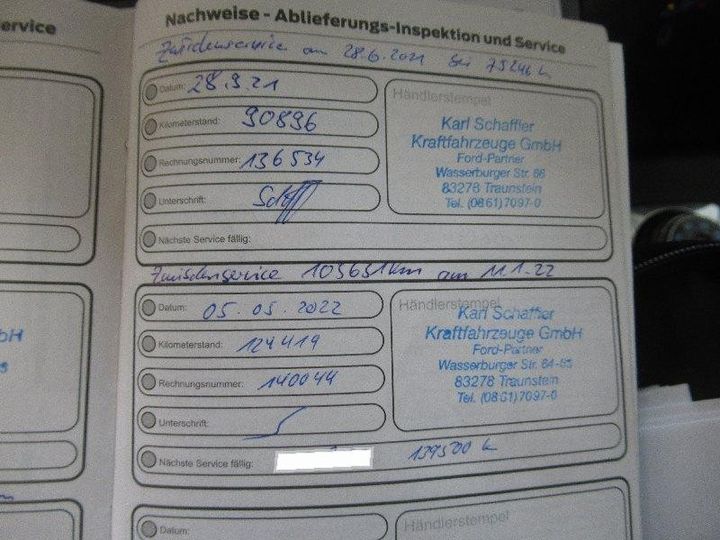 ervice
Nachweise - Ablieferungs-Inspektion und Service
Zwischenservice am 28.6.2021 bei 75246 k
Datum: 28.9.21
Händlerstempel
Kilometerstand: 90896
Karl Schaffler
Kraftfahrzeuge GmbH
Ford-Partner
Rechnungsnummer: 136534
Wasserburger Str. 66
83278 Traunstein
Tel. (0861)7097-0
Unterschrift:
Nächste Service fällig:
Zwischenservice 105651km am 11.1.22
Datum: 05.05.2022
Händlerstempel
Karl Schaffler
Kraftfahrzeuge GmbH
Kilometerstand: 124419
Ford-Partner
Wasserburger Str. 64-66
Rechnungsnummer: 140044
83278 Traunstein
Tel. (0861)7097-0
Unterschrift:
Nächste Service fällig: 139500 k
Datum:
Händlerstempel